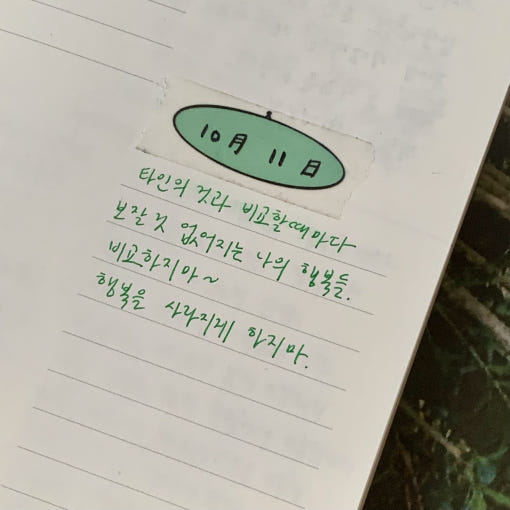 10月 11日
타인의 것과 비교할때마다
보잘 것 없어지는 나의 행복들.
비교하지마~
행복을 사라지게 하지마.